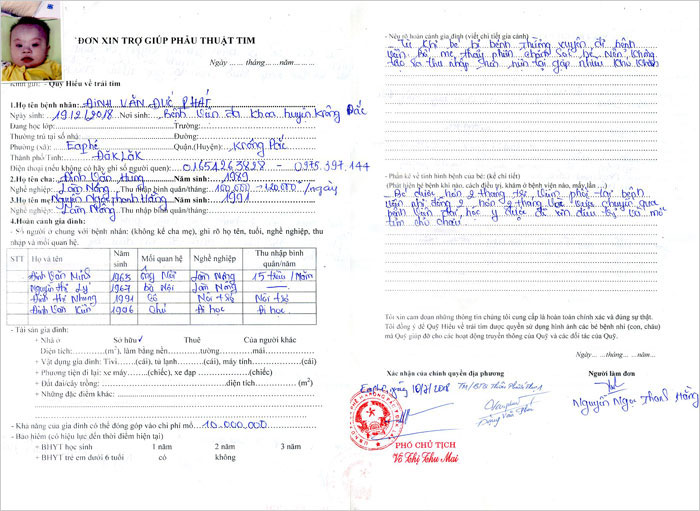 ĐƠN XIN TRỢ GIÚP PHẪU THUẬT TIM
Ngày ...... tháng......năm.........
Kính gửi: - Quỹ Hiểu về trái tim
1.Họ tên bệnh nhân: ĐINH VĂN ĐỨC PHÁT
Ngày sinh: 19/12/2018 Nơi sinh: Bệnh viện đa khoa huyện Krông Pắc
Đang học lớp: Trường:
Thường trú tại số nhà: Đường:
Phường (xã): Eaphê Quận,(Huyện): Krông Pắc
Thành phố Tỉnh: Đăk Lăk
Điện thoại (nếu không có hãy ghi số người quen): 01654263828 - 0975.397.144
2.Họ tên cha: Đinh Văn Hùng Năm sinh: 1989
Nghề nghiệp: Làm Nông Thu nhập bình quân/tháng: 100.000 - 120.000/ngày
3.Họ tên mẹ: Nguyễn Ngọc Thanh Hằng Năm sinh: 1991
Nghề nghiệp: Làm Nông
4.Hoàn cảnh gia đình:
- Số người ở chung với bệnh nhân: (không kể cha mẹ), ghi rõ họ tên, tuổi, nghề nghiệp, thu
nhập và mối quan hệ.
STT Họ và tên Năm sinh Mối quan hệ Nghề nghiệp Thu nhập bình quân/năm
Đinh Văn Minh 1963 ông Nội Làm Nông 15 triệu/Năm
Nguyễn Thị Lý 1967 bà Nội Làm Nông
Đinh Thị Nhung 1991 Cô Nội trợ Nội trợ
Đinh Văn 1996 Chú Đi học Đi học
- Tài sản gia đình:
+ Nhà ở Sở hữu Thuê Của người khác
Diện tích:..........(m²), làm bằng nền..........tường..........mái..........
+ Vật dụng gia đình: Tivi......(cái), tủ lạnh......(cái), máy tính......(cái)
+ Phương tiện đi lại: xe máy......(chiếc), xe đạp ............(chiếc)
+ Đất đai/cây trồng: ..........diện tích .......... (m²)
+ Những đặc điểm khác: ..........
- Khả năng của gia đình có thể đóng góp vào chi phí mổ: 10.000.000
- Bảo hiểm (có hiệu lực đến thời điểm hiện tại)
+ BHYT học sinh 1 năm 2 năm 3 năm
+ BHYT trẻ em dưới 6 tuổi có không
- Nêu rõ hoàn cảnh gia đình (viết chi tiết gia cảnh)
- Từ khi bé bị bệnh thường xuyên đi bệnh
viện. Bố mẹ thay phiên chăm sóc bé nên không
thu nhập hiện tại gặp nhiều khó khăn
- Phần kể về tình hình bệnh của bé: (kể chi tiết)
(Phát hiện bị bệnh khi nào, cách điều trị, khám ở bệnh viện nào, mấy lần ...)
- Bé được hơn 2 tháng tuổi viêm phổi tại bệnh
viện nhi đồng 2 hơn 2 tháng vừa chuyển qua
bệnh viện đại học y dược để xin điều trị và mổ
tim cho cháu.
Tôi xin cam đoan những thông tin chúng tôi cung cấp là hoàn toàn chính xác và đúng sự thật.
Tôi đồng ý để Quỹ Hiểu về trái tim được quyền sử dụng hình ảnh các bé bệnh nhi (con, cháu)
mà Quỹ giúp đỡ cho các hoạt động truyền thông của Quỹ và các đối tác của Quỹ.
Ngày... tháng ... năm......
Xác nhận của chính quyền địa phương Người làm đơn
Eaphê, ngày
PHÓ CHỦ TỊCH
Võ Thị Thu Mai
Nguyễn Ngọc Thanh Hằng